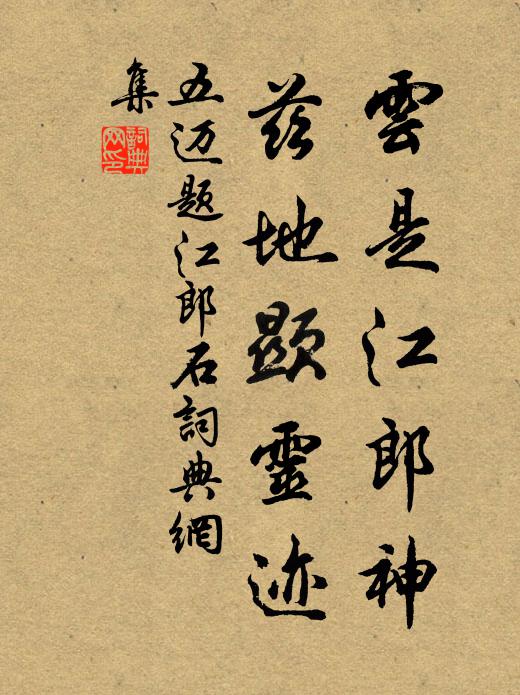 雲是江郎神
茲地顯靈迹
五迈題江郎石詞典網
集
詞典
网印